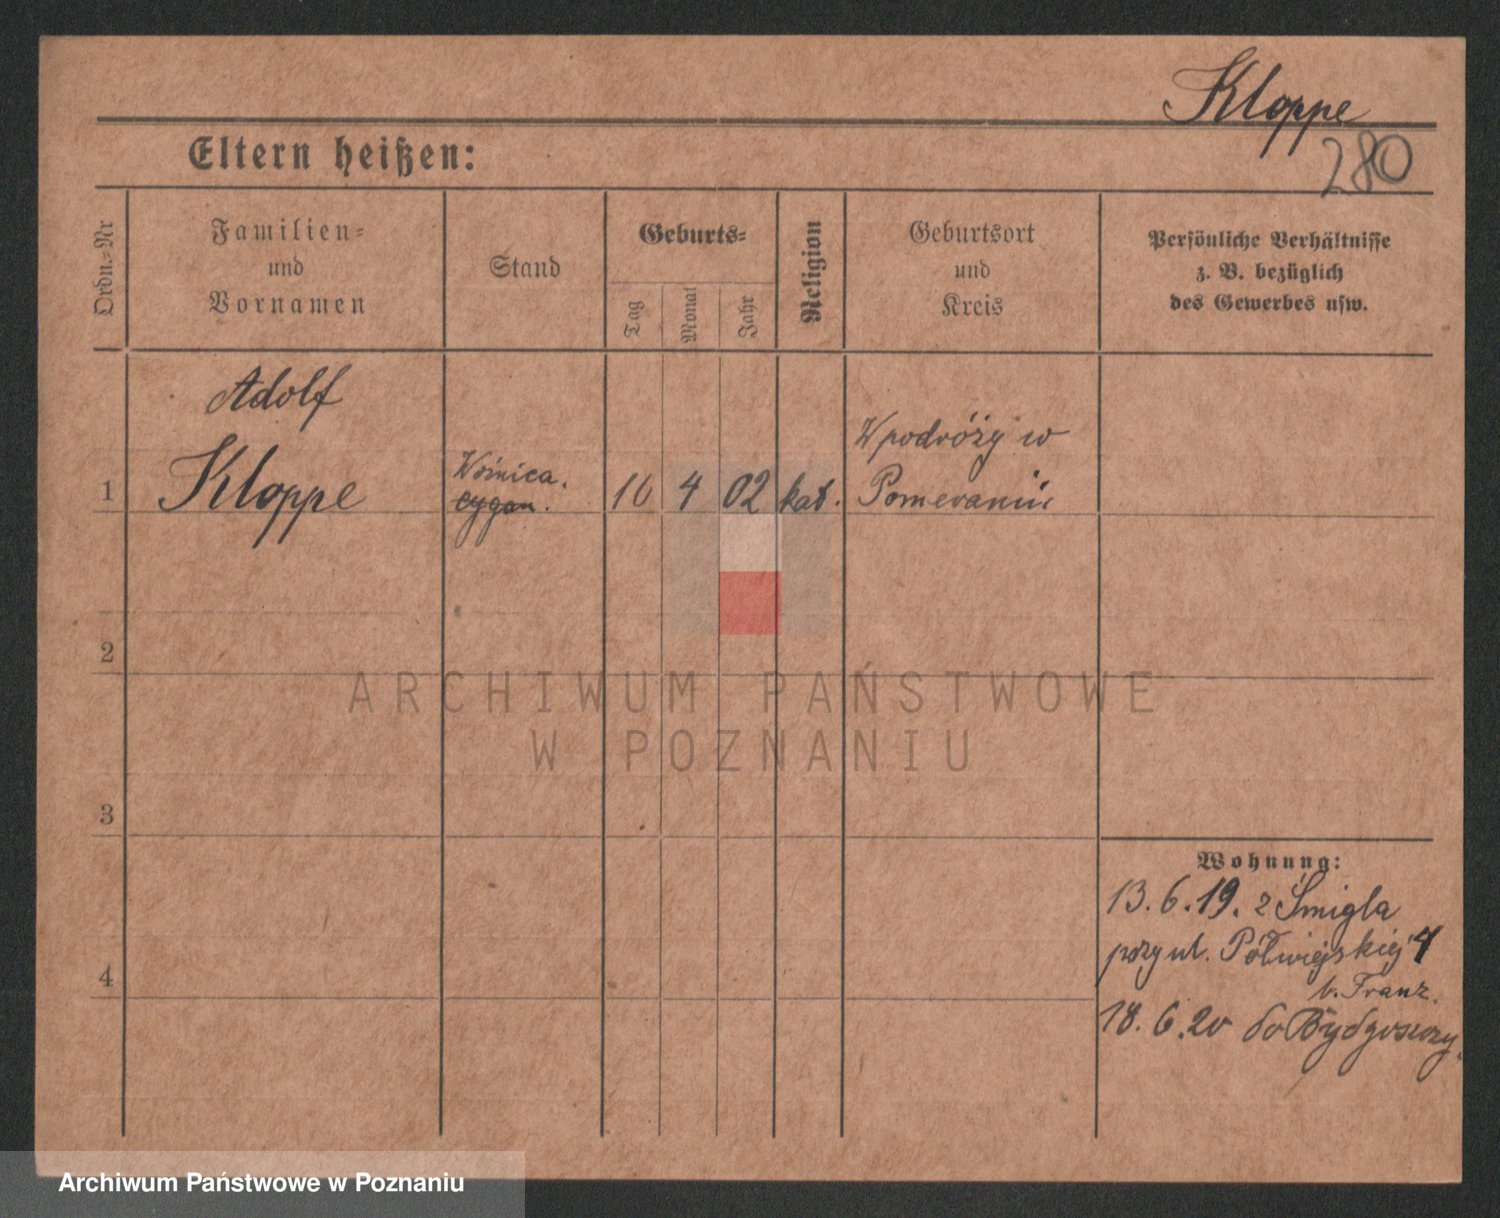 Kloppe
280
Eltern heißen:
Ordn.-Nr
Familien-
und
Vornamen
Stand
Geburts-
Tag
Monat
Jahr
Religion
Geburtsort
und
Kreis
Persönliche Verhältnisse
z. B. bezüglich
des Gewerbes usw.
Adolf
1 Kloppe
Woźnica.
cygan.
10 4 02 kat.
W podróży w
Pomeranii
2
3
4
Wohnung:
13.6.19. z Śmigla
przy ul. Półwiejskiej 4
b. Franz.
18.6.20 do Bydgoszczy.
ARCHIWUM PAŃSTWOWE
W POZNANIU
Archiwum Państwowe w Poznaniu